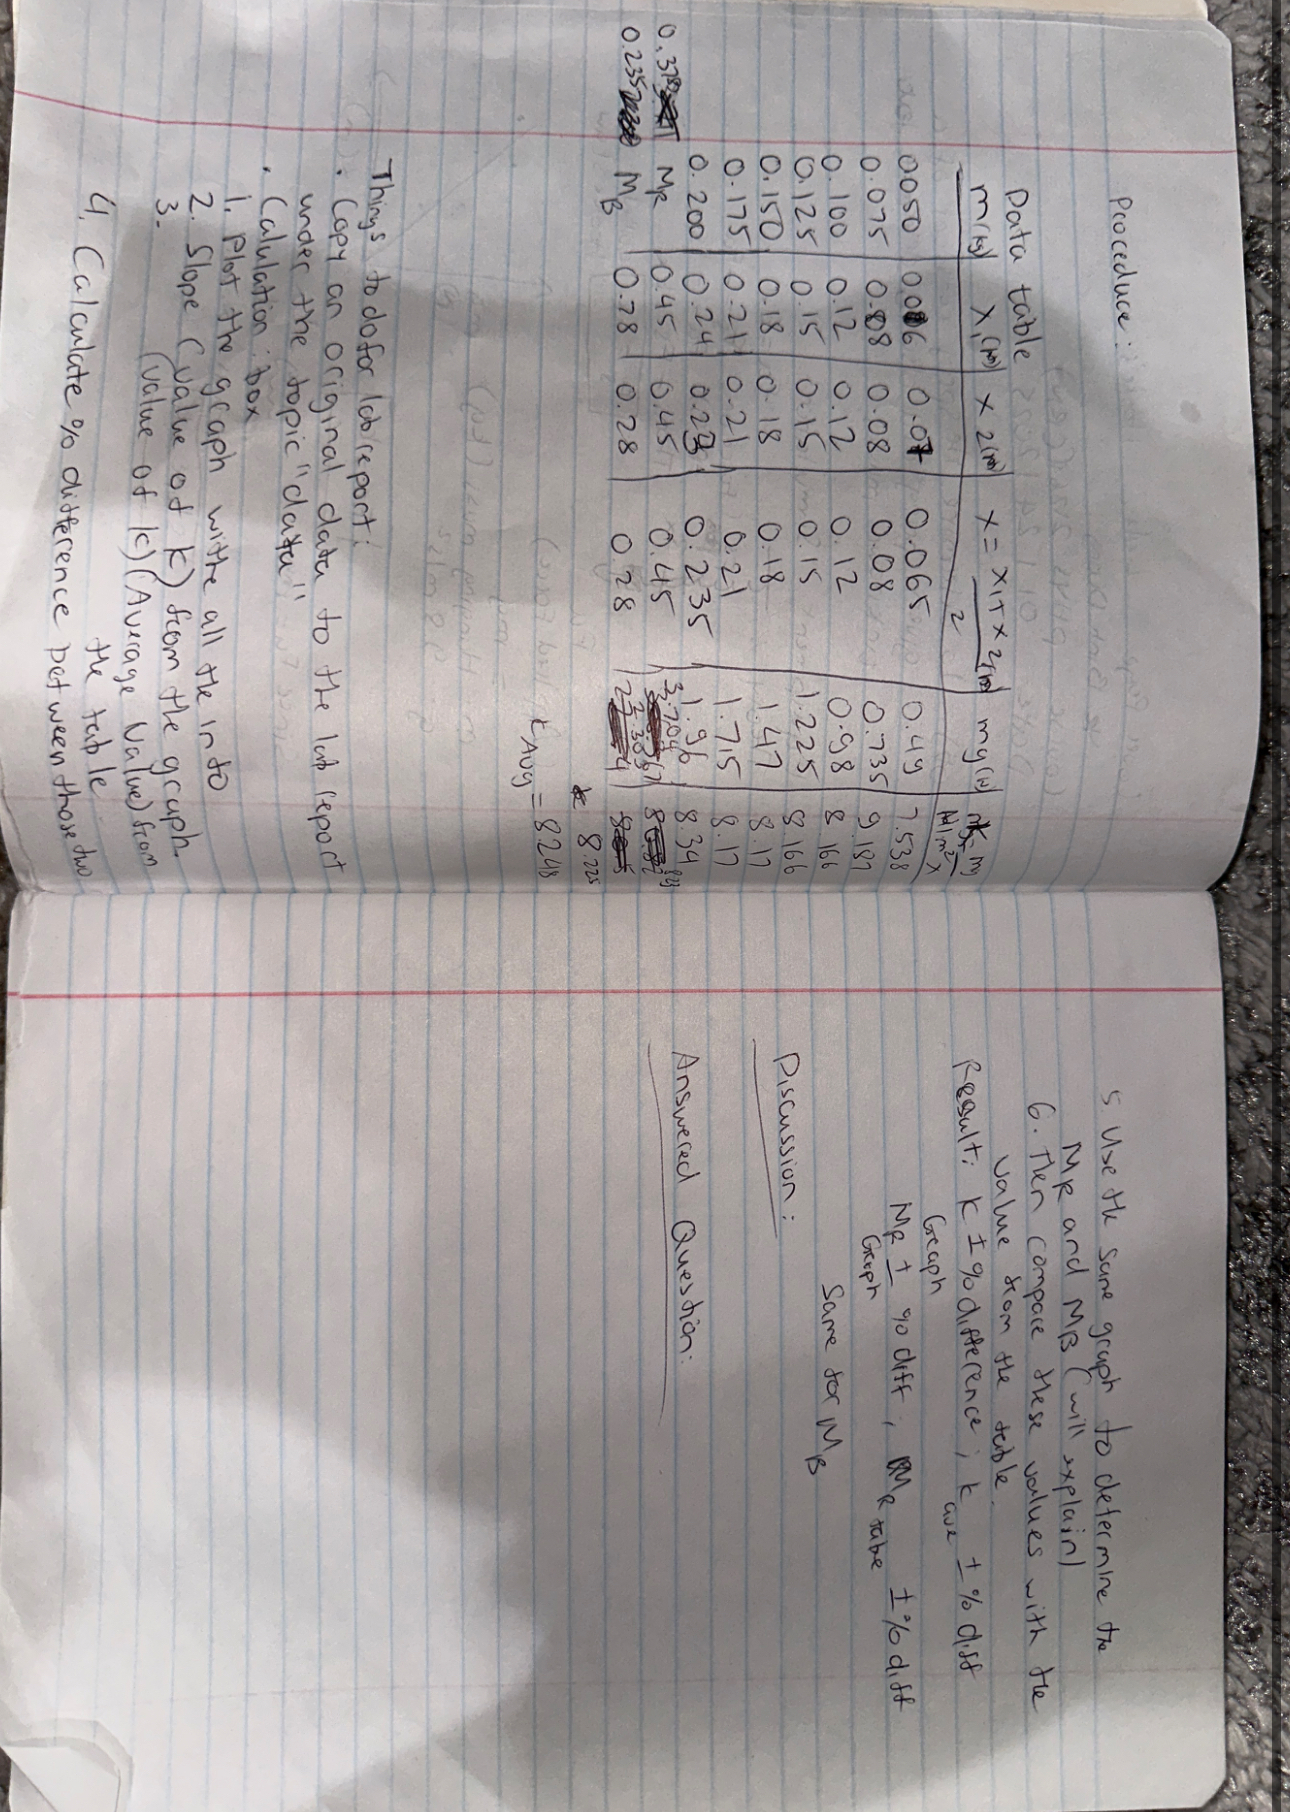 Proceduce:
Data table
m(kg) x1(m) x2(m) x = x1+x2(m) / 2 mg(N) mg/x N/m
0.050 0.06 0.07 0.065 0.49 7.538
0.075 0.08 0.08 0.08 0.735 9.187
0.100 0.12 0.12 0.12 0.98 8.166
0.125 0.15 0.15 0.15 1.225 8.166
0.150 0.18 0.18 0.18 1.47 8.17
0.175 0.21 0.21 0.21 1.715 8.17
0.200 0.24 0.23 0.235 1.96 8.34
0.378 MR 0.45 0.45 0.45 3.704
0.235 MB 0.28 0.28 0.28
8.225
kAvg = 8.248
Things to do for lab report:
. Copy an original data to the lab report
under the topic "data"
. Calculation: box
1. Plot the graph withe all the info
2. Slope (value of k) from the graph.
3. (value of k) (Average Value) from
the table
4. Calculate % difference between those two
5. Use the same graph to determine the
MR and MB (will explain)
6. Then compare these values with the
value from the table.
Result: K ± % difference ; k ave ± % diff
Graph
MR ± % diff , MR table ± % diff
Graph
Same for MB
Discussion:
Answered Question: